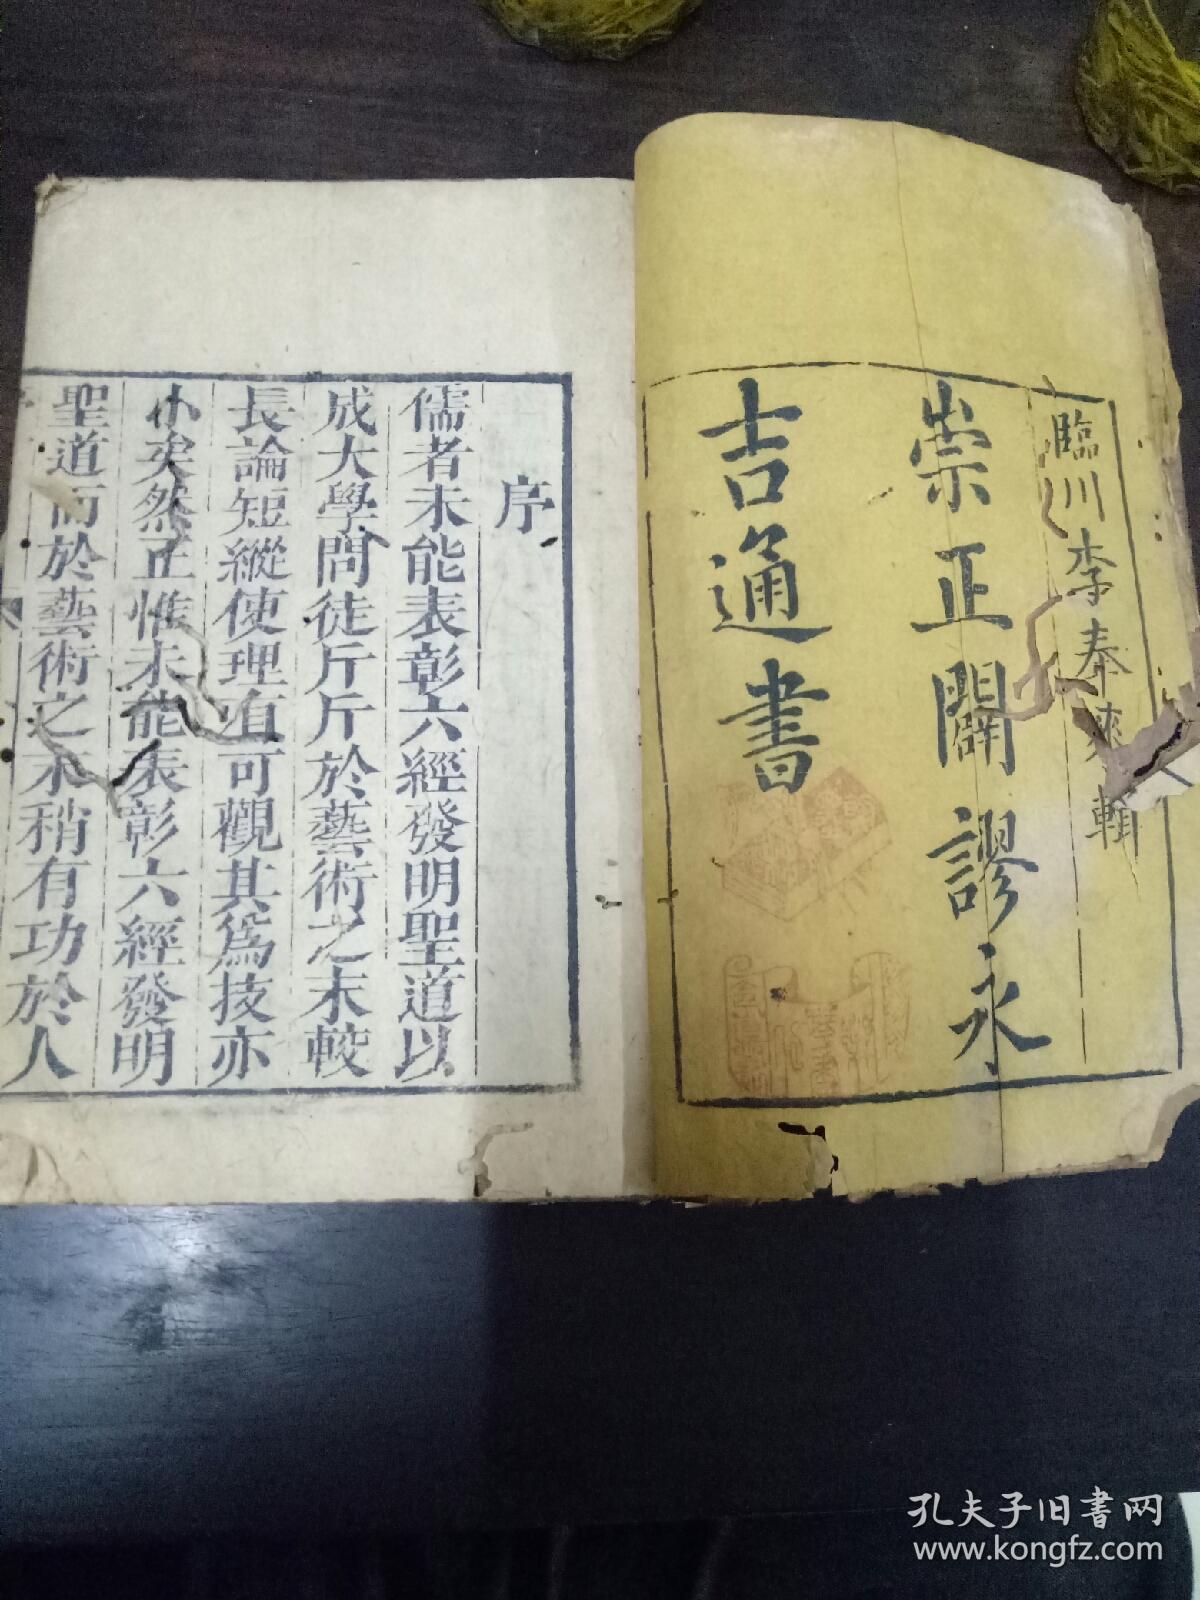 臨川李奉來輯
崇正闢謬永
吉通書
序
儒者未能表彰六經發明聖道以
成大學問徒斤斤於藝術之末較
長論短縱使理有可觀其為技亦
小矣然正惟未能表彰六經發明
聖道而於藝術之末稍有功於人
孔夫子旧书网
www.kongfz.com